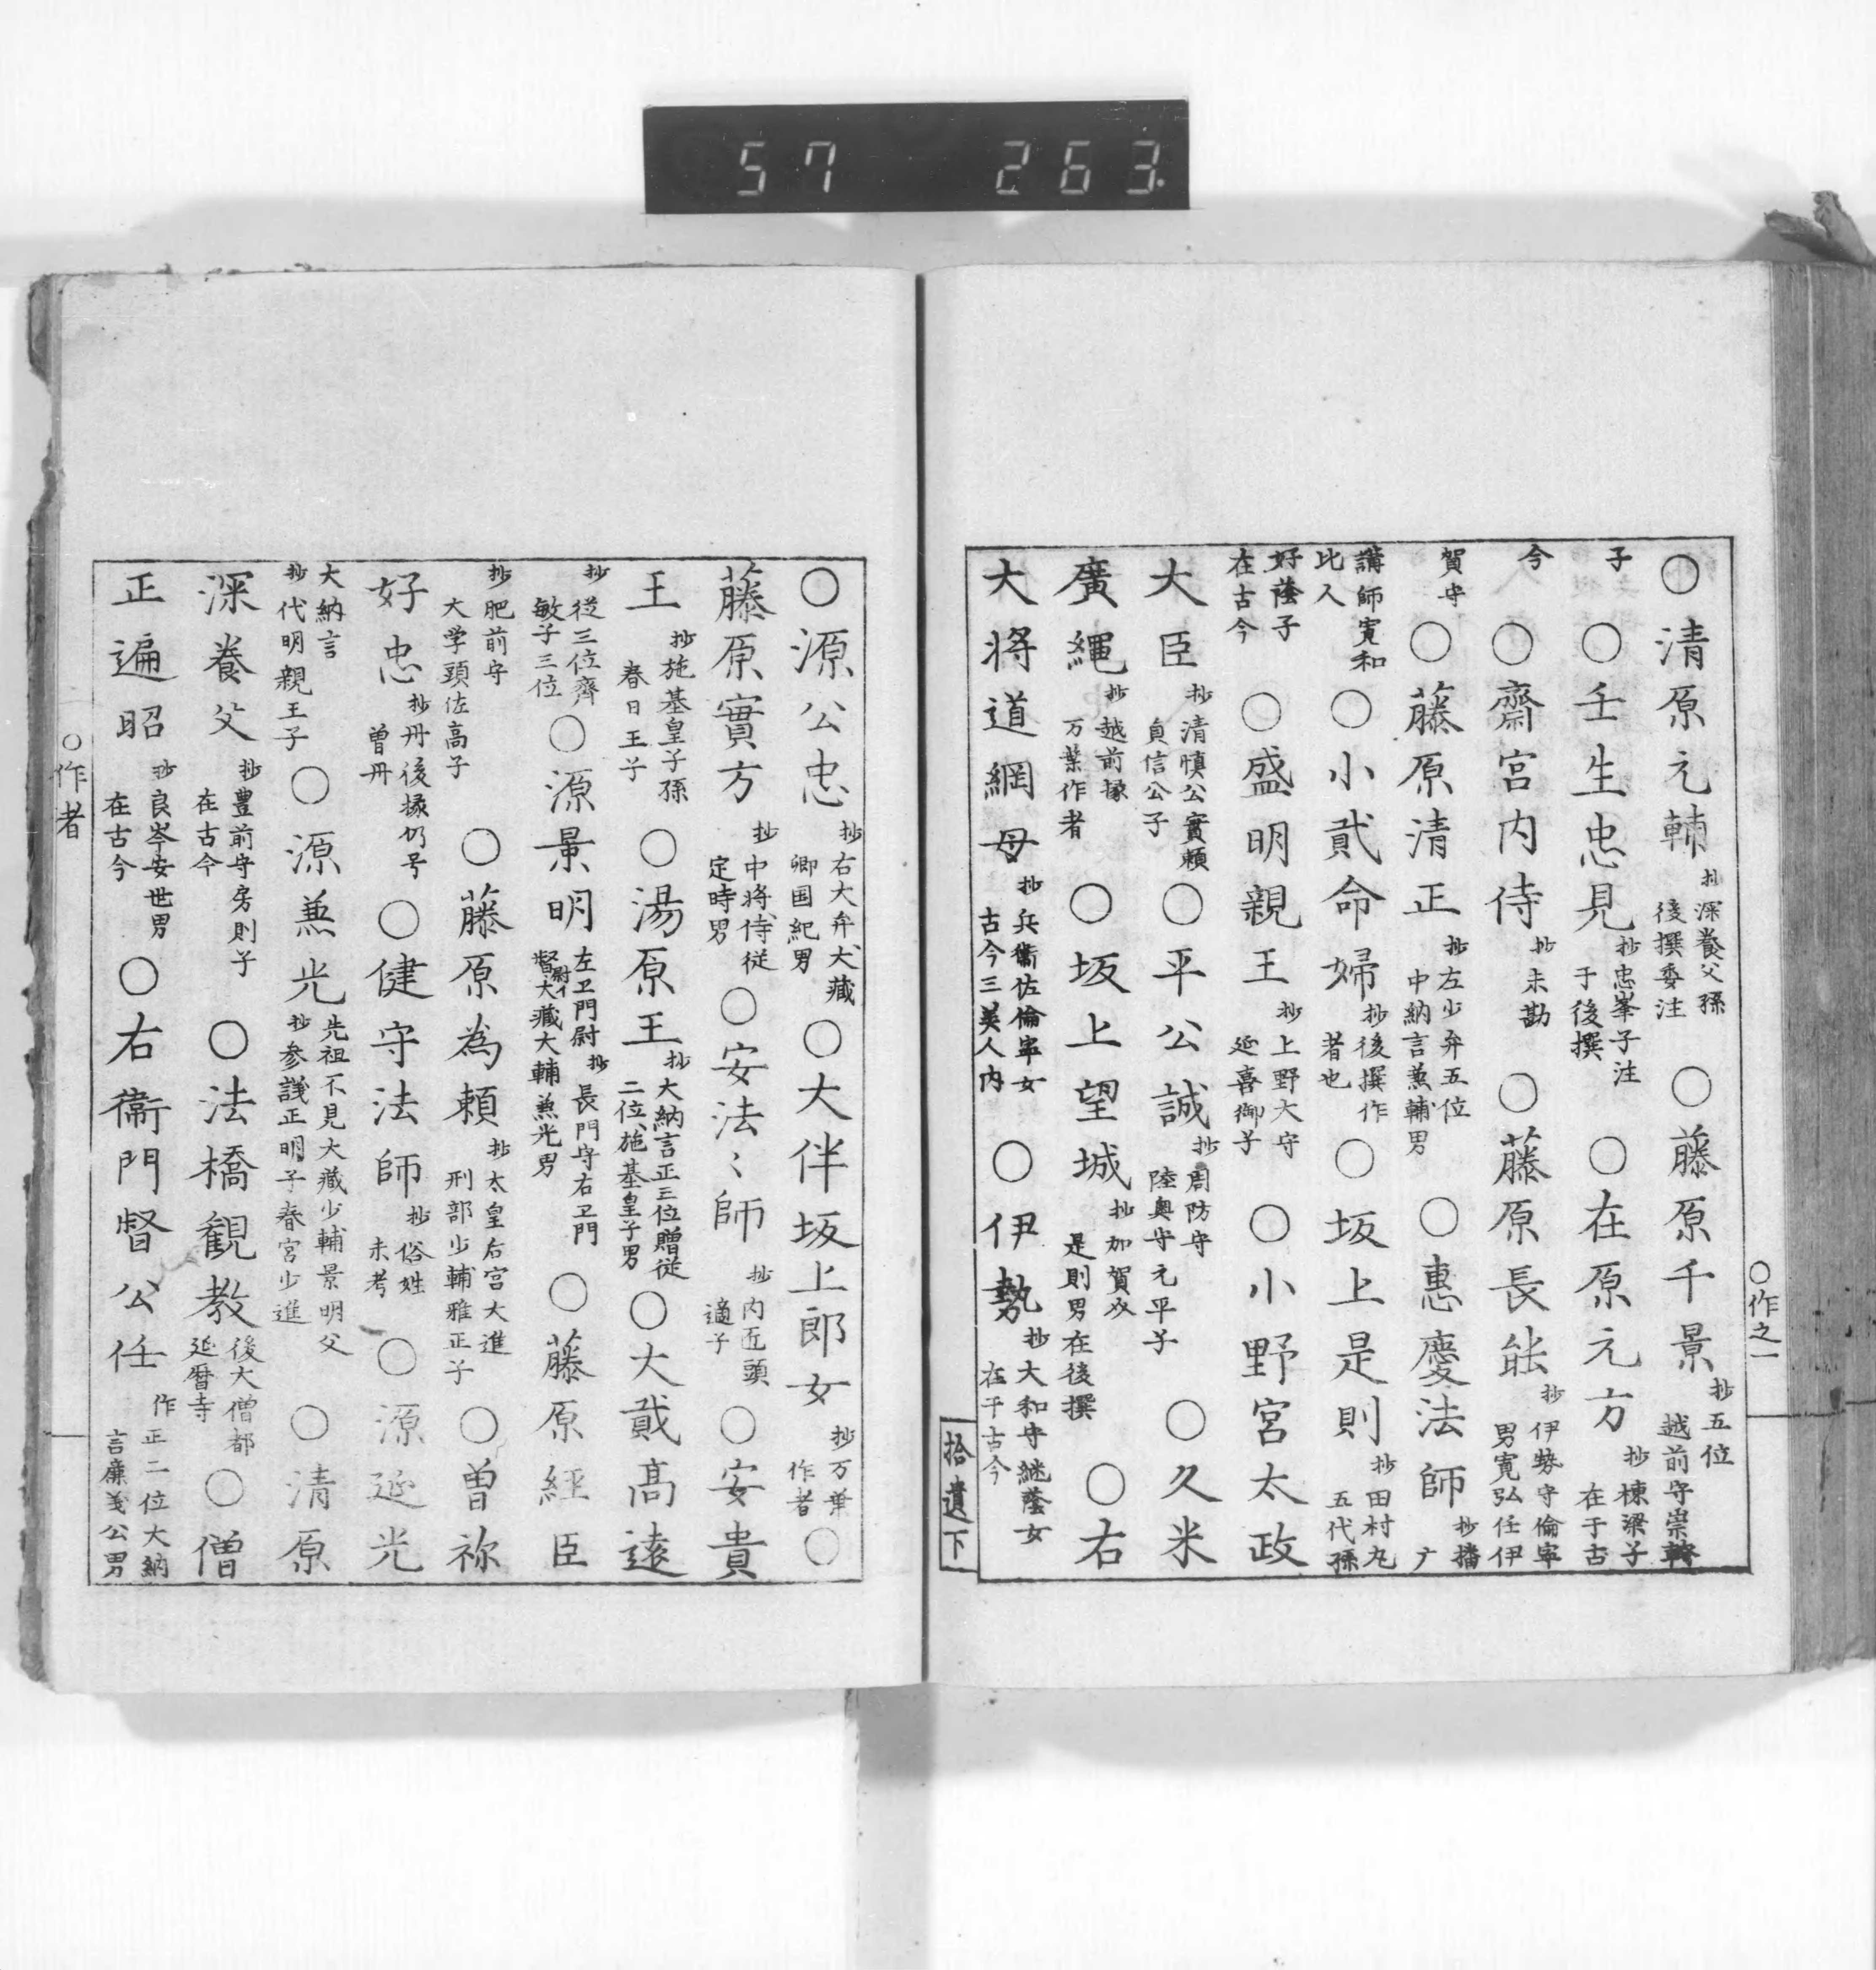 57 263.
○作之一
○清原元輔 抄深養父孫 後撰委注 ○藤原千景 抄五位 越前守崇
子 ○壬生忠見 抄忠峯子注 于後撰 ○在原元方 抄棟梁子 在于古
今 ○齋宮内侍 抄未勘 ○藤原長能 抄伊勢守倫寧 男寛弘任伊
賀守 ○藤原清正 抄左少弁五位 中納言兼輔男 ○惠慶法師 抄播 广
講師寛和 比人 ○小貳命婦 抄後撰作 者也 ○坂上是則 抄田村丸 五代孫
好蔭子 在古今 ○盛明親王 抄上野大守 延喜御子 ○小野宮太政
大臣 抄清慎公實頼 貞信公子 ○平公誠 抄周防守 陸奥守元平子 ○久米
廣縄 抄越前掾 万葉作者 ○坂上望城 抄加賀 是則男在後撰 ○右
大将道綱母 抄兵衞佐倫寧女 古今三美人内 ○伊勢 抄大和守継蔭女 在于古今
拾遺下
○源公忠 抄右大弁大藏 卿国紀男 ○大伴坂上郎女 抄万葉 作者 ○
藤原實方 抄中将侍従 定時男 ○安法〻師 抄内匠頭 適子 ○安貴
王 抄施基皇子孫 春日王子 ○湯原王 抄大納言正三位贈従 二位施基皇子男 ○大貮高遠
抄従三位齊 敏子三位 ○源景明 左卫門尉抄長門守右卫門 督尉イ大藏大輔兼光男 ○藤原経臣
抄肥前守 大学頭佐高子 ○藤原為頼 抄太皇后宮大進 刑部少輔雅正子 ○曽祢
好忠 抄丹後掾仍号 曽丹 ○健守法師 抄俗姓 未考 ○源延光
大納言 抄代明親王子 ○源兼光 先祖不見大藏少輔景明父 抄参議正明子春宮少進 ○清原
深養父 抄豊前守房則子 在古今 ○法橋観教 後大僧都 延暦寺 ○僧
正遍昭 抄良岑安世男 在古今 ○右衞門督公任 作正二位大納 言廉義公男
○作者